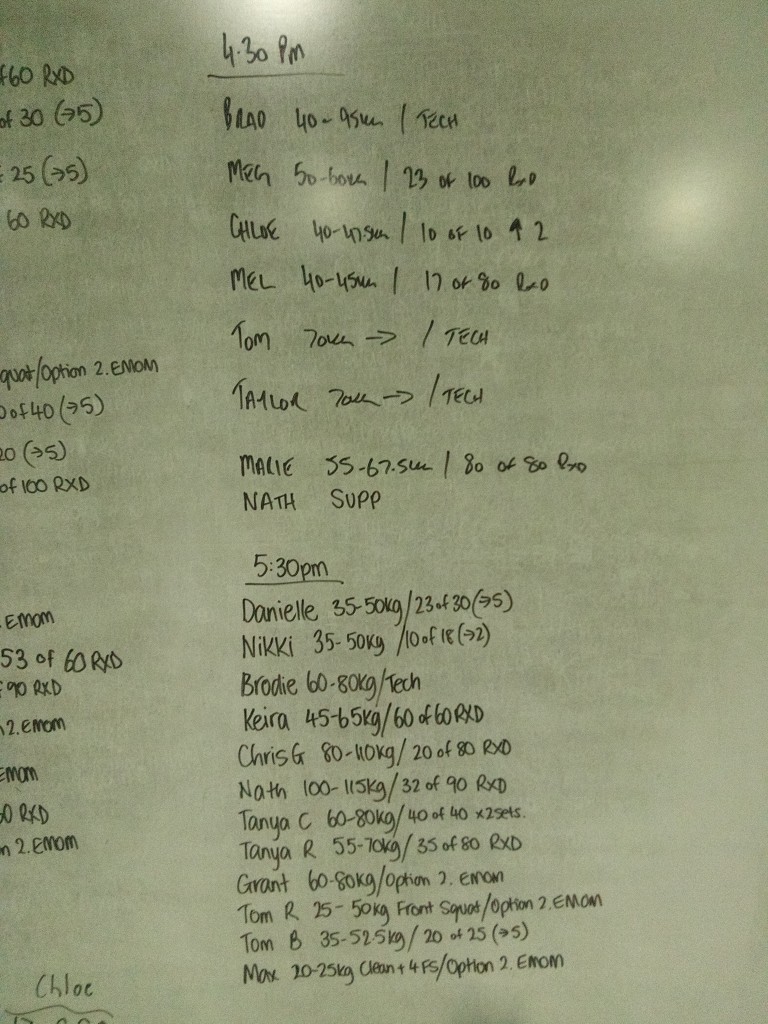 of 60 RXD
of 30 (→5)
25 (→5)
60 RXD
quat/Option 2.EMOM
of 40 (→5)
20 (→5)
of 100 RXD
. EMOM
53 of 60 RXD
90 RXD
2. EMOM
EMOM
0 RXD
n 2. EMOM
Chloe
4.30 Pm
BRAD 40-95KG / TECH
MEG 50-60KG / 23 OF 100 RXD
CHLOE 40-47.5KG / 10 OF 10 ↑ 2
MEL 40-45KG / 17 OF 80 RXD
TOM 70KG → / TECH
TAYLOR 70KG → / TECH
MARIE 55-67.5KG / 80 OF 80 RXD
NATH SUPP
5:30pm
Danielle 35-50kg/23 of 30 (→5)
Nikki 35-50kg /10 of 18 (→2)
Brodie 60-80kg/Tech
Keira 45-65kg/60 of 60 RXD
Chris G 80-110kg/ 20 of 80 RXD
Nath 100-115kg/32 of 90 RXD
Tanya C 60-80kg/40 of 40 x2sets.
Tanya R 55-70kg/35 of 80 RXD
Grant 60-80kg/Option 2. EMOM
Tom R 25-50kg Front Squat/Option 2.EMOM
Tom B 35-52.5kg/ 20 of 25 (→5)
Max 20-25kg Clean + 4 FS/Option 2. EMOM